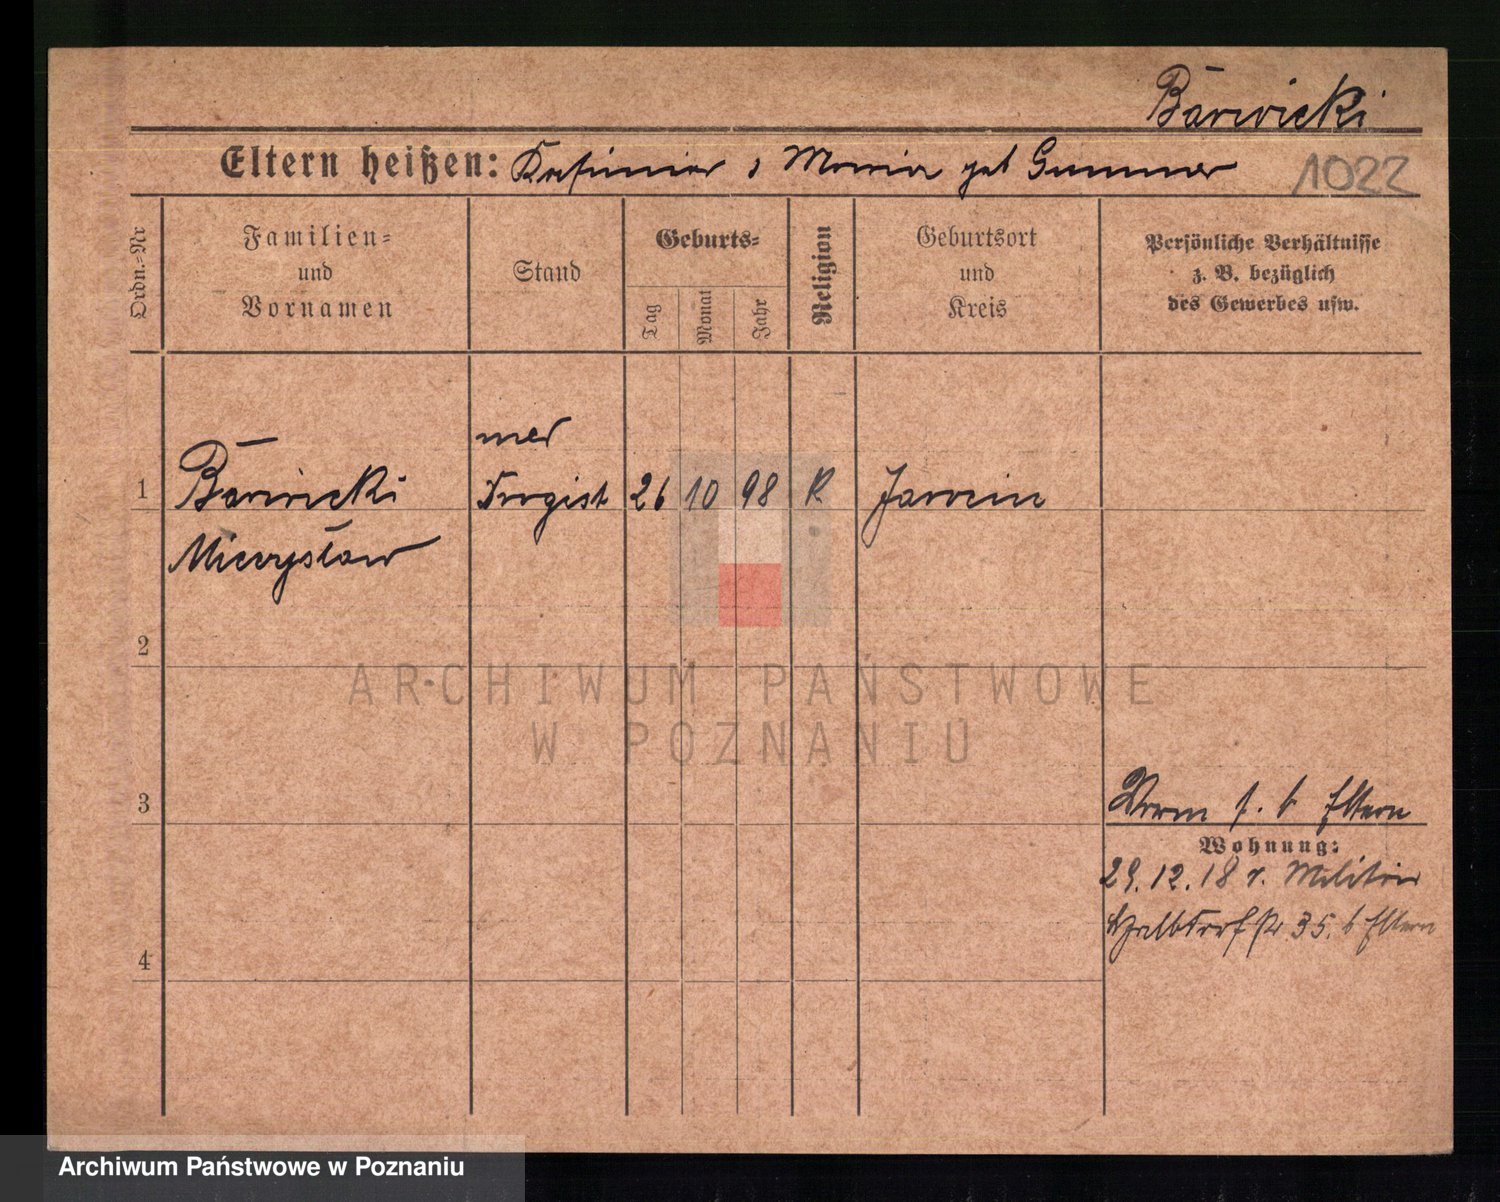 Bärwicki
Eltern heißen: Kasimier u Maria geb Gummer
1022
Ordn.-Nr
Familien-
und
Vornamen
Stand
Geburts-
Tag
Monat
Jahr
Religion
Geburtsort
und
Kreis
Persönliche Verhältnisse
z. B. bezüglich
des Gewerbes usw.
1
Bärwicki
Mieczysław
led
Drogist
26
10
98
K
Jarocin
2
3
4
Worm s. b Eltern
Wohnung:
29.12.18 v. Militär
35. b Eltern
ARCHIWUM PAŃSTWOWE
W POZNANIU
Archiwum Państwowe w Poznaniu